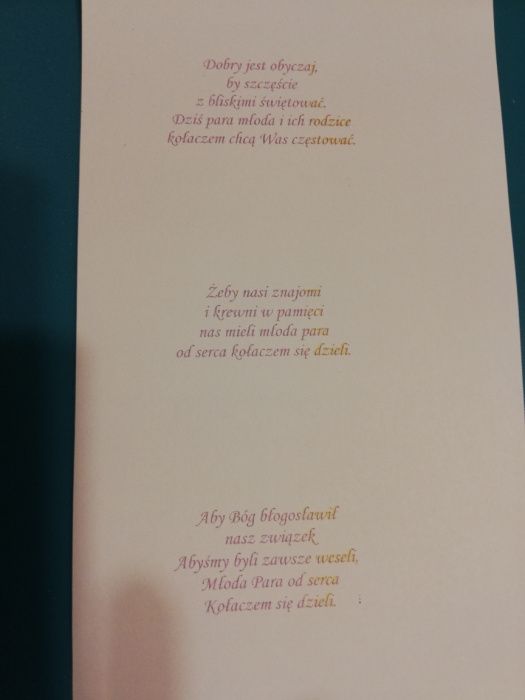 Dobry jest obyczaj,
by szczęście
z bliskimi świętować.
Dziś para młoda i ich rodzice
kołaczem chcą Was częstować.
Żeby nasi znajomi
i krewni w pamięci
nas mieli młoda para
od serca kołaczem się dzieli.
Aby Bóg błogosławił
nasz związek
Abyśmy byli zawsze weseli,
Młoda Para od serca
Kołaczem się dzieli.